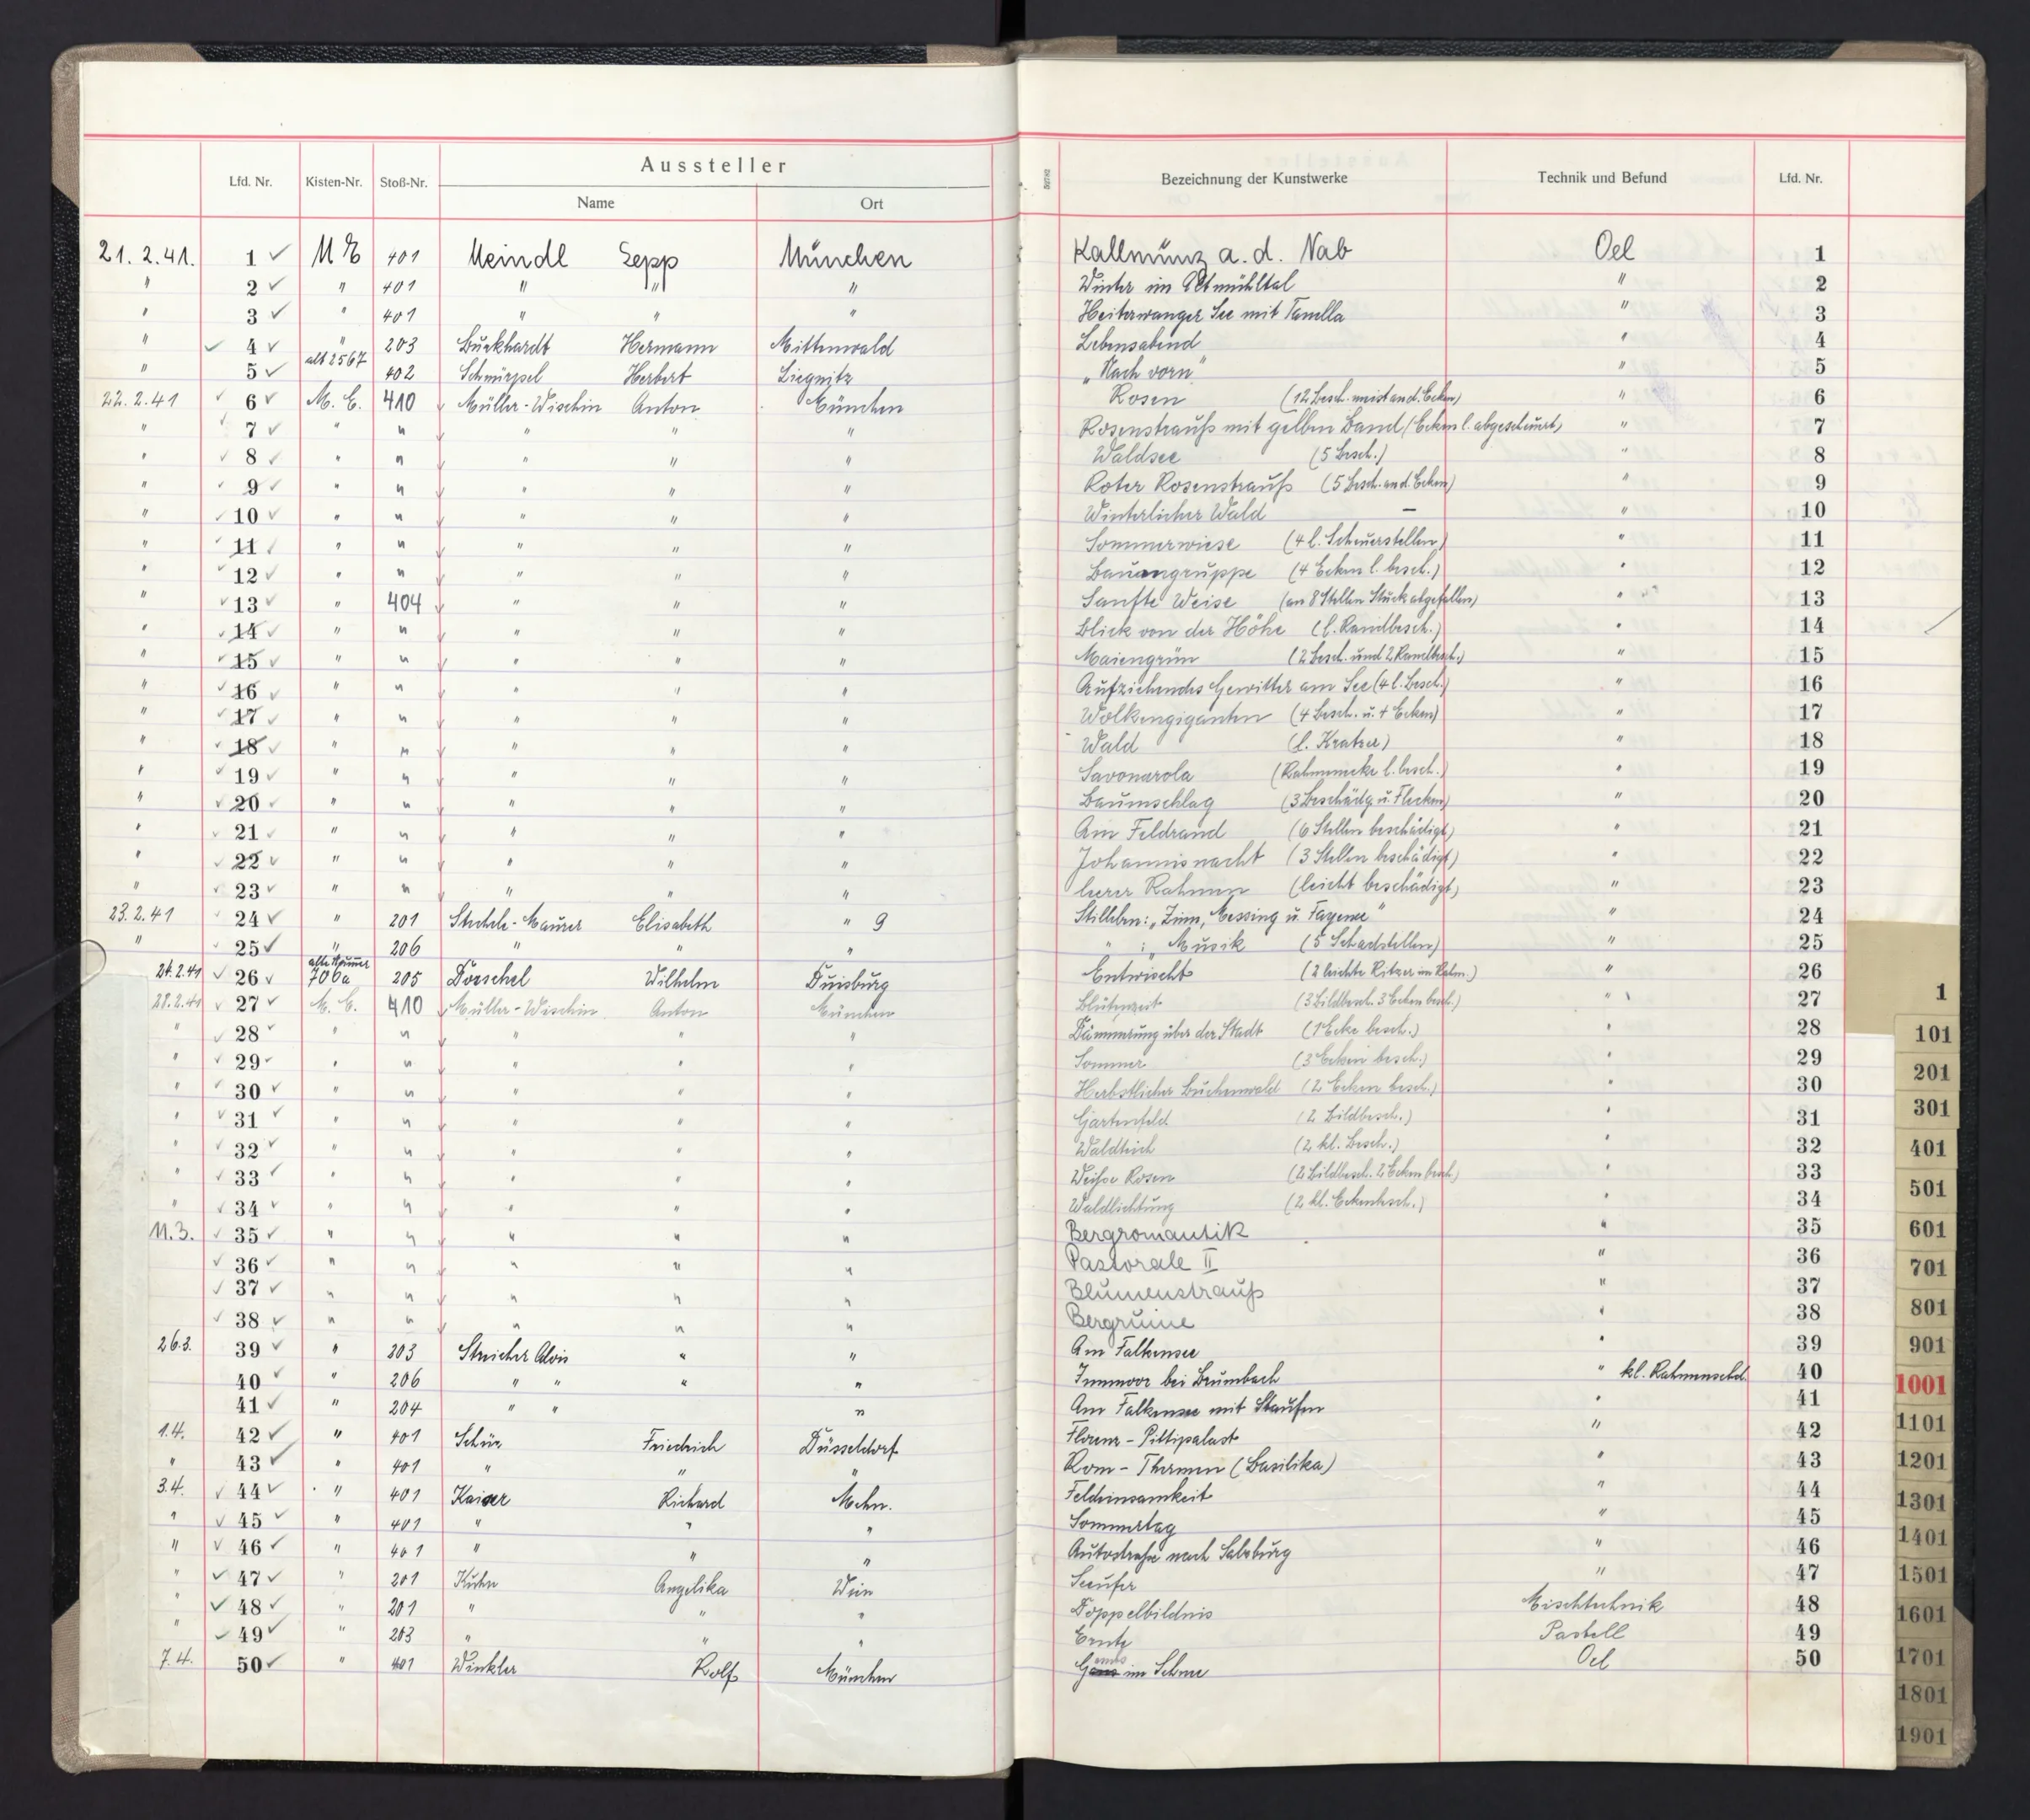 Aussteller
Lfd. Nr. Kisten-Nr. Stoß-Nr. Name Ort Bezeichnung der Kunstwerke Technik und Befund Lfd. Nr.
21. 2. 41. 1 ✓ 401 Meindl Sepp München Kallmünz a. d. Nab Oel 1
" 2 ✓ " 401 " " " Winter im Altmühltal " 2
" 3 ✓ " 401 " " " Heiterwanger See mit Tanella " 3
" ✓ 4 ✓ " 203 Burkhardt Hermann Mittenwald Lebensabend " 4
" 5 ✓ alt 2567 402 Herbert Liegnitz „Nach vorn" " 5
22. 2. 41 ✓ 6 ✓ M. E. 410 Müller-Wischin Anton München Rosen (12 Besch. meist an d. Ecken) " 6
" ✓ 7 ✓ " " " " " Rosenstrauß mit gelbem Band (Ecken l. abgescheuert) " 7
" ✓ 8 ✓ " " " " " Waldsee (5 Besch.) " 8
" ✓ 9 ✓ " " " " " Roter Rosenstrauß (5 Besch. an d. Ecken) " 9
" ✓ 10 ✓ " " " " " Winterlicher Wald — " 10
" ✓ 11 ✓ " " " " " Sommerwiese (4 l. Scheuerstellen) " 11
" ✓ 12 ✓ " " " " " Baumgruppe (4 Ecken l. besch.) " 12
" ✓ 13 ✓ " 404 " " " Sanfte Weise (an 8 Stellen Stuck abgefallen) " 13
" ✓ 14 ✓ " " " " " Blick von der Höhe (l. Randbesch.) " 14
" ✓ 15 ✓ " " " " " Maiengrün (2 Besch. und 2 Randbesch.) " 15
" ✓ 16 ✓ " " " " " Aufziehendes Gewitter am See (4 l. Besch.) " 16
" ✓ 17 ✓ " " " " " Wolkengiganten (4 Besch. u. 4 Ecken) " 17
" ✓ 18 ✓ " " " " " Wald (l. Kratzer) " 18
" ✓ 19 ✓ " " " " " Savonarola (Rahmenecke l. besch.) " 19
" ✓ 20 ✓ " " " " " Baumschlag (3 Beschädg u. Flecken) " 20
" ✓ 21 ✓ " " " " " Am Feldrand (6 Stellen beschädigt) " 21
" ✓ 22 ✓ " " " " " Johannisnacht (3 Stellen beschädigt) " 22
" ✓ 23 ✓ " " " " " leerer Rahmen (leicht beschädigt) " 23
23. 2. 41 ✓ 24 ✓ " 201 Elisabeth " 9 Stilleben: „Zinn, Messing u. Fayence" " 24
" ✓ 25 ✓ " 206 " " " " : „Musik (5 Schadstellen) " 25
24. 2. 41 ✓ 26 ✓ alte Nummer 706a 205 Dörschel Wilhelm Duisburg Entwischt (2 leichte Ritzer im Rahm.) " 26
28. 2. 41 ✓ 27 ✓ M. E. 410 Müller-Wischin Anton München Blütenzeit (3 Bildbesch. 3 Ecken besch.) " 27
" ✓ 28 ✓ " " " " " Dämmerung über der Stadt (1 Ecke besch.) " 28
" ✓ 29 ✓ " " " " " Sommer (3 Ecken besch.) " 29
" ✓ 30 ✓ " " " " " Herbstlicher Buchenwald (2 Ecken besch.) " 30
" ✓ 31 ✓ " " " " " Gartenfeld (2 Bildbesch.) " 31
" ✓ 32 ✓ " " " " " Waldteich (2 kl. Besch.) " 32
" ✓ 33 ✓ " " " " " Weiße Rosen (2 Bildbesch. 2 Ecken besch.) " 33
" ✓ 34 ✓ " " " " " Waldlichtung (2 kl. Eckenbesch.) " 34
11. 3. ✓ 35 ✓ " " " " " Bergromantik " 35
✓ 36 ✓ " " " " " Pastorale II " 36
✓ 37 ✓ " " " " " Blumenstrauß " 37
✓ 38 ✓ " " " " " Bergruine " 38
26.3. 39 ✓ " 203 Streicher Alois " " Am Falkensee " 39
40 ✓ " 206 " " " " Inzmoor bei Brumbach " kl. Rahmenschd. 40
41 ✓ " 204 " " " Am Falkensee mit Staufen " 41
1.4. 42 ✓ " 401 Schüz Friedrich Düsseldorf Florenz - Pittipalast " 42
" 43 ✓ " 401 " " " Rom - Thermen (Basilika) " 43
3.4. ✓ 44 ✓ " 401 Kaiser Richard Mchn. Feldeinsamkeit " 44
" ✓ 45 ✓ " 401 " " " Sommertag " 45
" ✓ 46 ✓ " 401 " " " Autostraße nach Salzburg " 46
" ✓ 47 ✓ " 201 Kuhn Angelika Wien Seeufer " 47
" ✓ 48 ✓ " 201 " " " Doppelbildnis Mischtechnik 48
" ✓ 49 ✓ " 203 " " " Ernte Pastell 49
7.4. 50 ✓ " 401 Winkler Rolf München im Schnee Oel 50
1
101
201
301
401
501
601
701
801
901
1001
1101
1201
1301
1401
1501
1601
1701
1801
1901